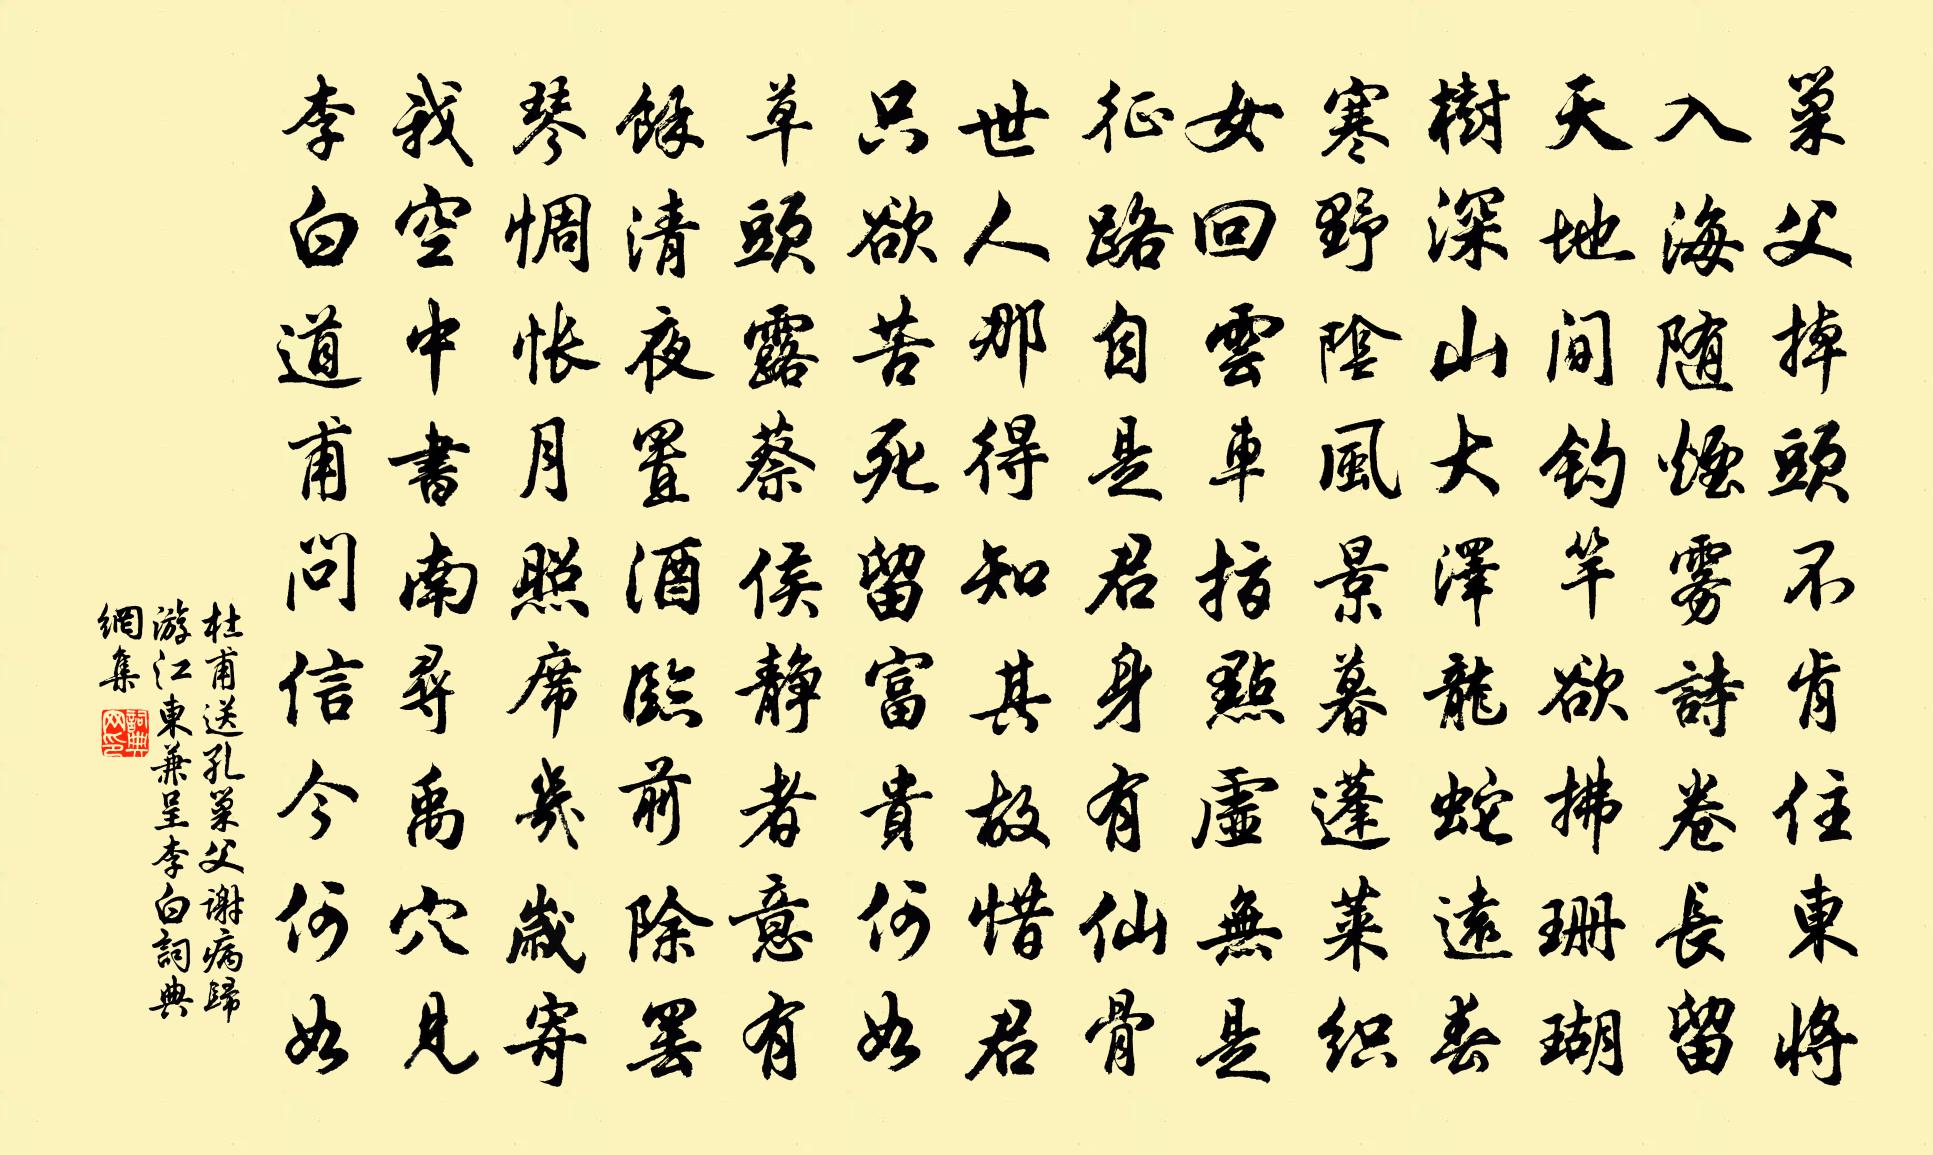 巢父掉頭不肯住東將
入海隨煙雾詩卷長留
天地间釣竿欲拂珊瑚
樹深山大澤龍蛇遠春
寒野陰風景暮蓬萊织
女回雲車指點虛無是
征路自是君身有仙骨
世人那得知其故惜君
只欲苦死留富貴何如
草頭露蔡侯靜者意有
餘清夜置酒臨前除罢
琴惆怅月照席幾歲寄
我空中書南尋禹穴見
李白道甫問信今何如
杜甫送孔巢父谢病歸
游江東兼呈李白詞典
網集
詞典
网印